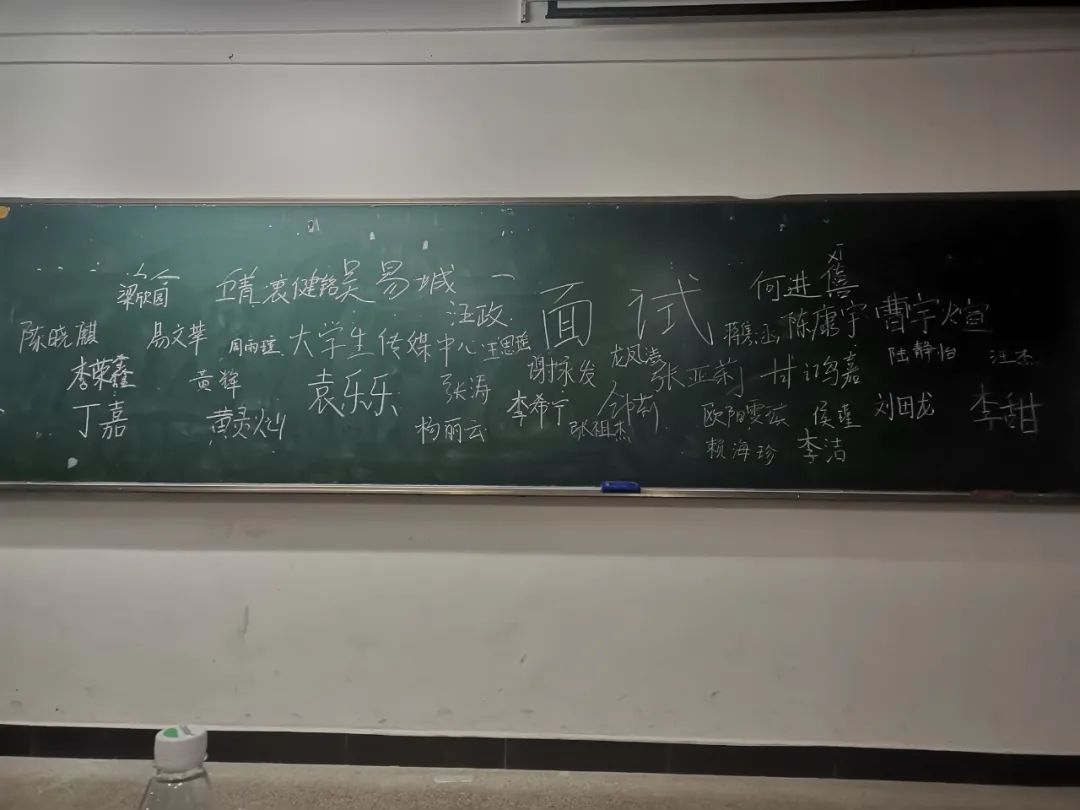 XI
梁欣
吴易城
一
面试
何进僖
汪政
陈晓麒
易文苹
周雨瑄
大学生传媒中心
王思瑶
陈康宇
曹宇煊
李荣鑫
黄辉
袁乐乐
张涛
谢承发
龙凤浩
张亚莉
甘鸿嘉
陆静怡
汪杰
丁嘉
黄灵灿
杨丽云
李希宁
张祖杰
钟莉
欧阳雯兹
侯瑾
刘田龙
李甜
赖海珍
李洁